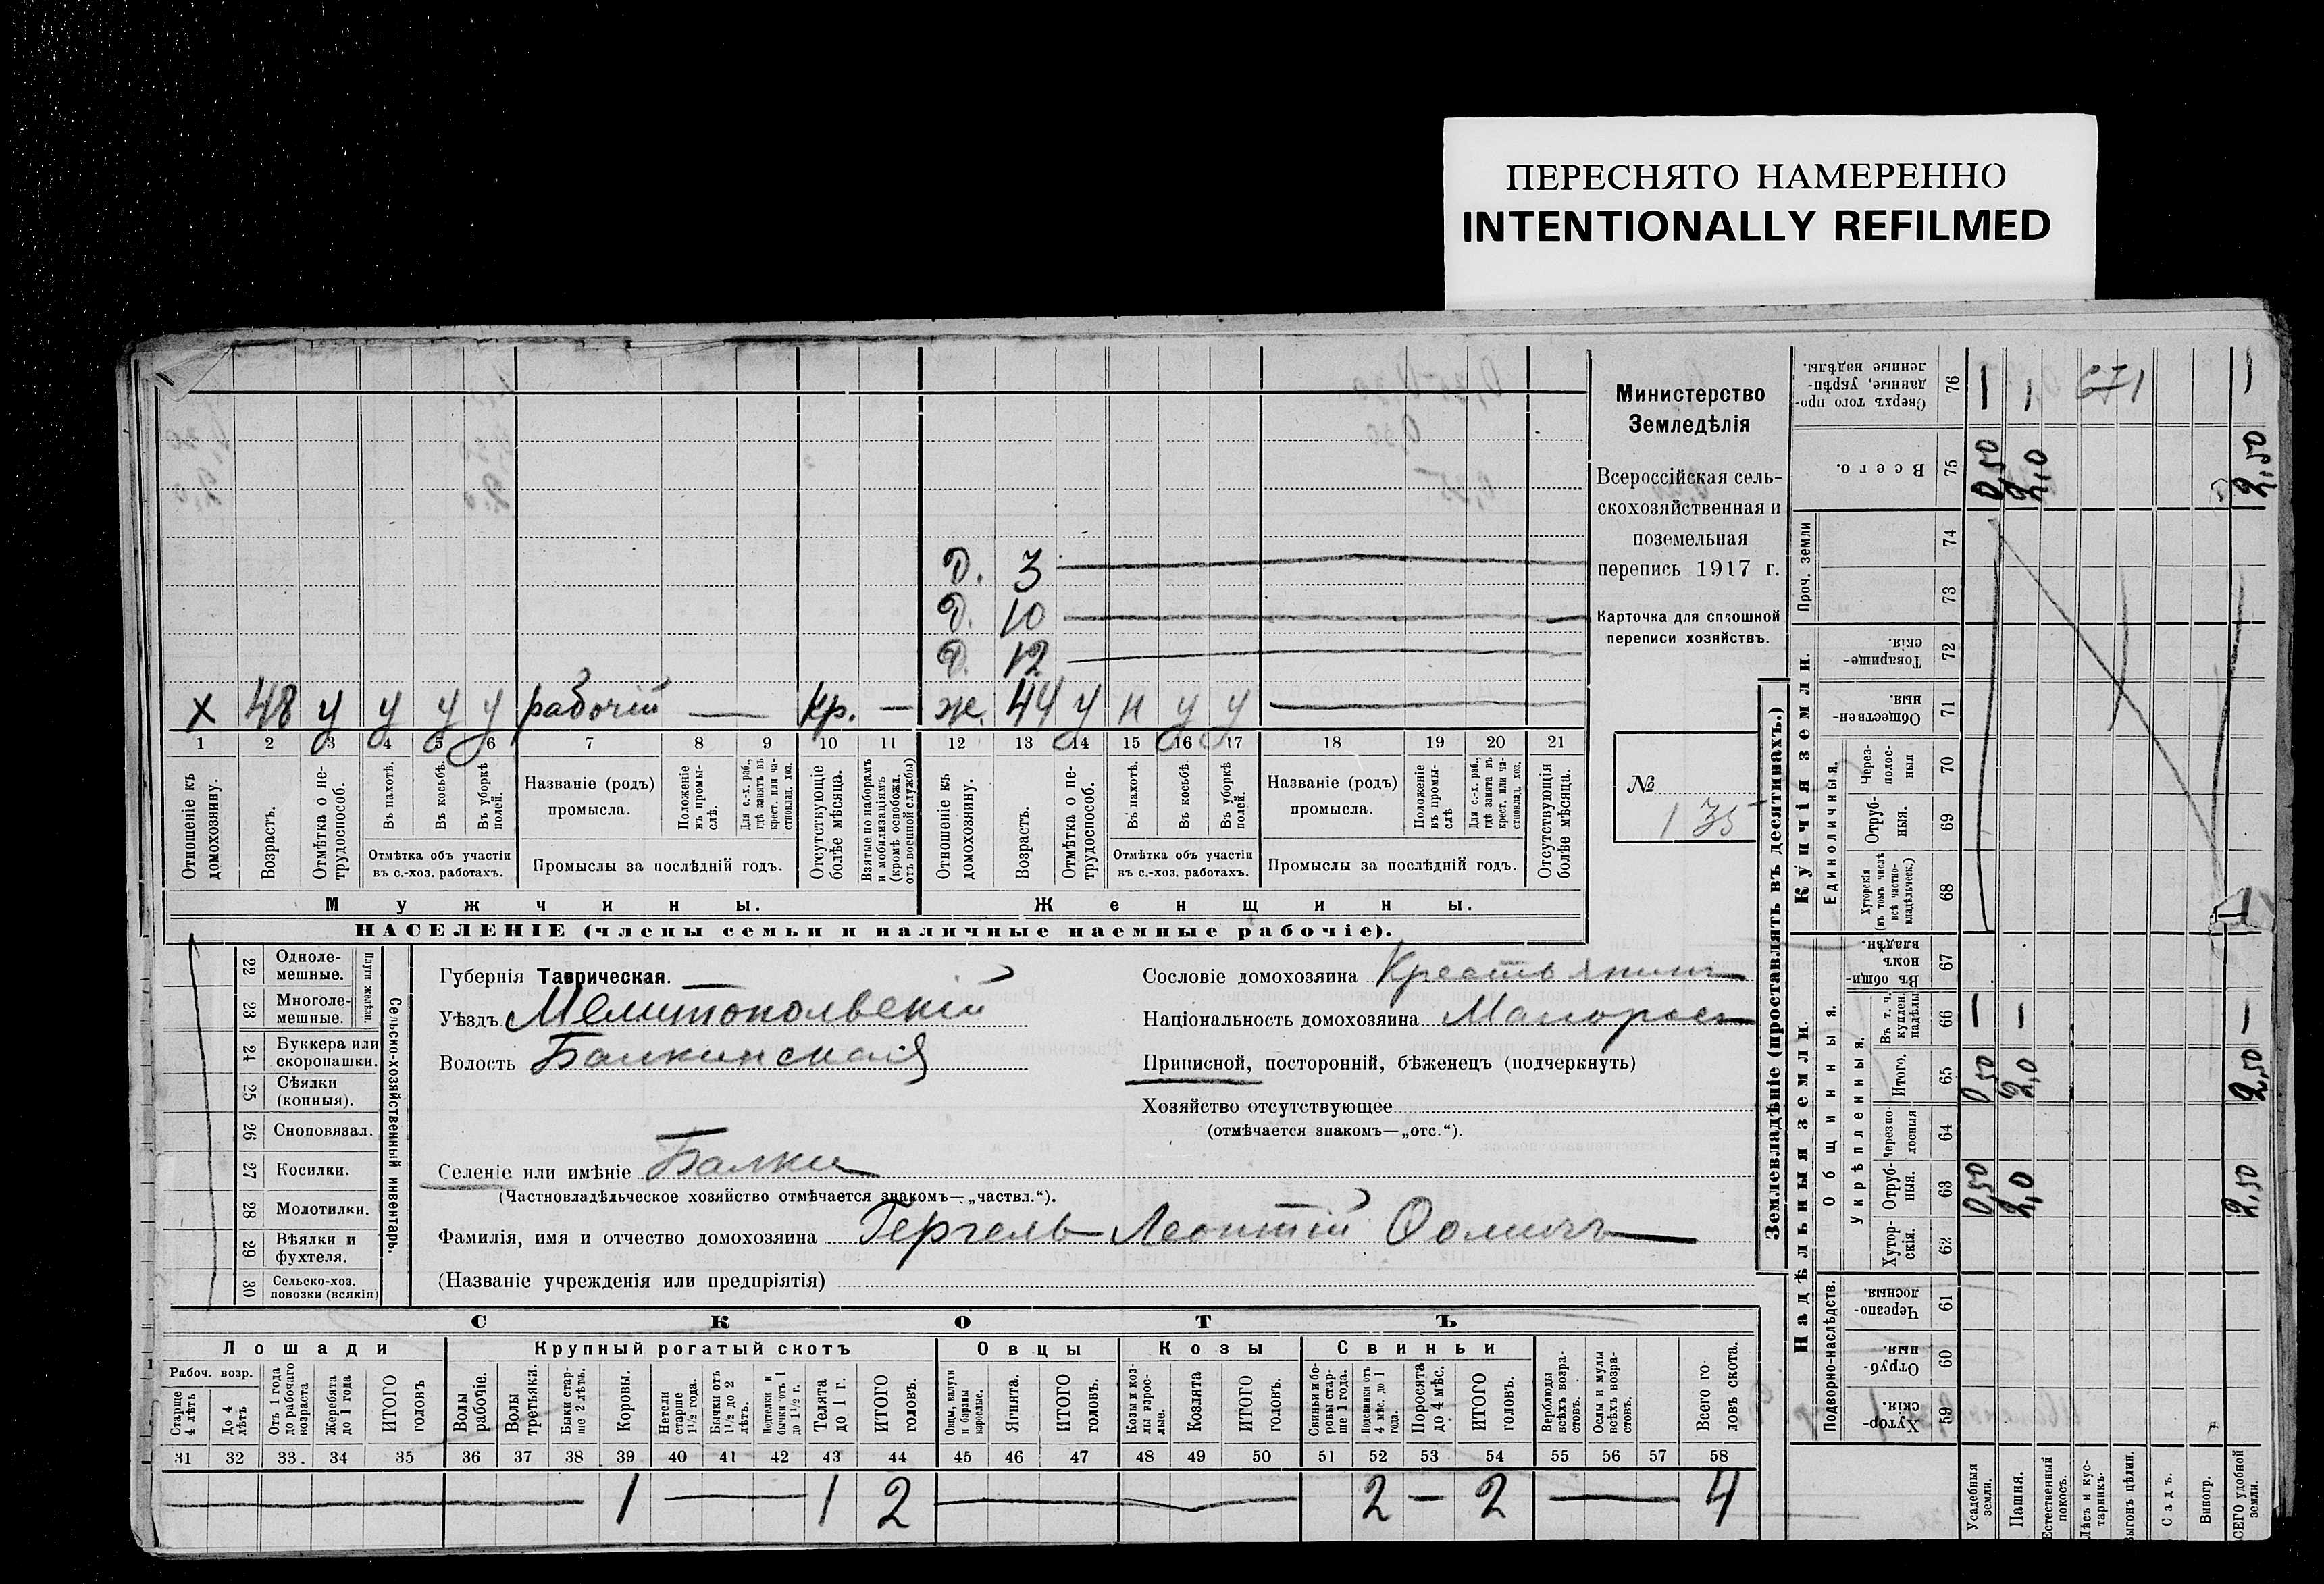 ПЕРЕСНЯТО НАМЕРЕННО
INTENTIONALLY REFILMED
Министерство
Земледѣлія
Всероссійская сель-
скохозяйственная и
поземельная
перепись 1917 г.
Карточка для сплошной
переписи хозяйствъ.
№
135
Д. 3
Д. 10
Д. 12
х 48 у у у у рабочій — кр. — ж. 44 у н у у
1 2 3 4 5 6 7 8 9 10 11 12 13 14 15 16 17 18 19 20 21
Отношеніе къ домохозяину.
Возрастъ.
Отмѣтка о не-трудоспособ.
Въ пахотѣ.
Въ косьбѣ.
Въ уборкѣ полей.
Отмѣтка объ участіи
въ с.-хоз. работахъ.
Названіе (родъ)
промысла.
Положеніе въ промы-слѣ.
Для с.-х. раб., гдѣ занятъ въ крест. или ча-стновлад. хоз.
Промыслы за послѣдній годъ.
Отсутствующіе болѣе мѣсяца.
Взятые по наборамъ и мобилизаціямъ (кромѣ освобожд. отъ военной службы)
Отношеніе къ домохозяину.
Возрастъ.
Отмѣтка о не-трудоспособ.
Въ пахотѣ.
Въ косьбѣ.
Въ уборкѣ полей.
Отмѣтка объ участіи
въ с.-хоз. работахъ.
Названіе (родъ)
промысла.
Положеніе въ промы-слѣ
Для с.-х. раб., гдѣ занята въ крест. или ча-стновлад. хоз.
Промыслы за послѣдній годъ.
Отсутствующія болѣе мѣсяца.
Мужчины.
Женщины.
НАСЕЛЕНІЕ (члены семьи и наличные наемные рабочіе).
22 Одноле-мешные.
23 Многоле-мешные.
Плуги желѣзн.
24 Буккера или скоропашки.
25 Сѣялки (конныя).
26 Сноповязал.
27 Косилки.
28 Молотилки.
29 Вѣялки и фухтеля.
30 Сельско-хоз. повозки (всякія)
Сельско-хозяйственный инвентарь.
Губернія Таврическая.
Уѣздъ Мелитопольскій
Волость Балкинская
Селеніе или имѣніе Балки
(Частновладѣльческое хозяйство отмѣчается знакомъ—„частвл.“).
Фамилія, имя и отчество домохозяина Гергель Леонтій Фомичъ
(Названіе учрежденія или предпріятія)
Сословіе домохозяина Крестьянинъ
Національность домохозяина Малоросъ
Приписной, посторонній, бѣженецъ (подчеркнуть)
Хозяйство отсутствующее
(отмѣчается знакомъ—„отс.“).
СКОТЪ
Лошади
Крупный рогатый скотъ
Овцы
Козы
Свиньи
Рабоч. возр.
Старше 4 лѣтъ
До 4 лѣтъ
Отъ 1 года до рабочаго возраста
Жеребята до 1 года
ИТОГО головъ
Волы рабочіе.
Волы третьяки.
Быки стар-ше 2 лѣтъ.
Коровы.
Нетели старше 1½ года.
Бычки отъ 1½ до 2 лѣтъ.
Подтелки и бычки отъ 1 до 1½ г.
Телята до 1 г.
ИТОГО головъ.
Овцы, валухи и бараны взрослые.
Ягнята.
ИТОГО головъ.
Козы и коз-лы взрос-лые.
Козлята
ИТОГО головъ.
Свиньи и бо-ровы стар-ше 1 года.
Подсвинки отъ 4 мѣс. до 1 года.
Поросята до 4 мѣс.
ИТОГО головъ.
Верблюды всѣхъ возра-стовъ.
Ослы и мулы всѣхъ возра-стовъ.
Всего го ловъ скота.
31 32 33. 34 35 36 37 38 39 40 41 42 43 44 45 46 47 48 49 50 51 52 53 54 55 56 57 58
— 1 — 1 2 — 2 — 2 — 4
Землевладѣніе (проставлять въ десятинахъ.)
Надѣльныя земли.
Купчія земли.
Проч. земли
Подворно-наслѣдств.
Общинныя.
Укрѣпленныя.
Единоличныя.
Сверхъ того про-данные, укрѣп-ленные надѣлы. 76 — — 671 —
Всего. 75 0,50 2,0 2,50
74
73
Товарище-скія. 72
Обществен-ныя. 71
Через-полос-ныя 70
Отруб-ныя. 69
Хуторскія (въ томъ числѣ всѣ частно-владѣльческ.) 68
Въ общин-номъ владѣн. 67
Въ т. ч. куплен. надѣлы 66 — — —
Итого. 65 0,50 2,0 2,50
Черезпо-лосныя 64
Отруб-ныя. 63 0,50 2,0 2,50
Хутор-скія. 62
Черезпо-лосныя. 61
Отруб-ныя. 60
Хутор-скія. 59
Усадебныя земли.
Пашня.
Естественный покосъ.
Лѣсъ и кус-тарникъ.
Выгонъ цѣлин.
Садъ.
Виногр.
ВСЕГО удобной земли.